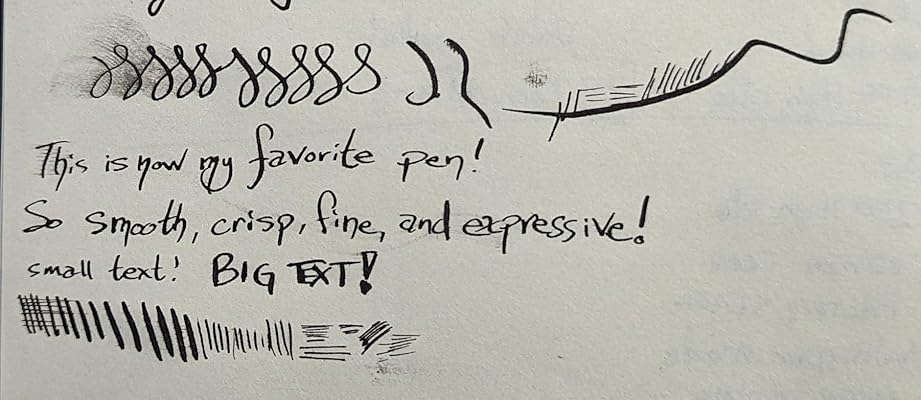 This is now my favorite pen!
So smooth, crisp, fine, and expressive!
small text! BIG TEXT!